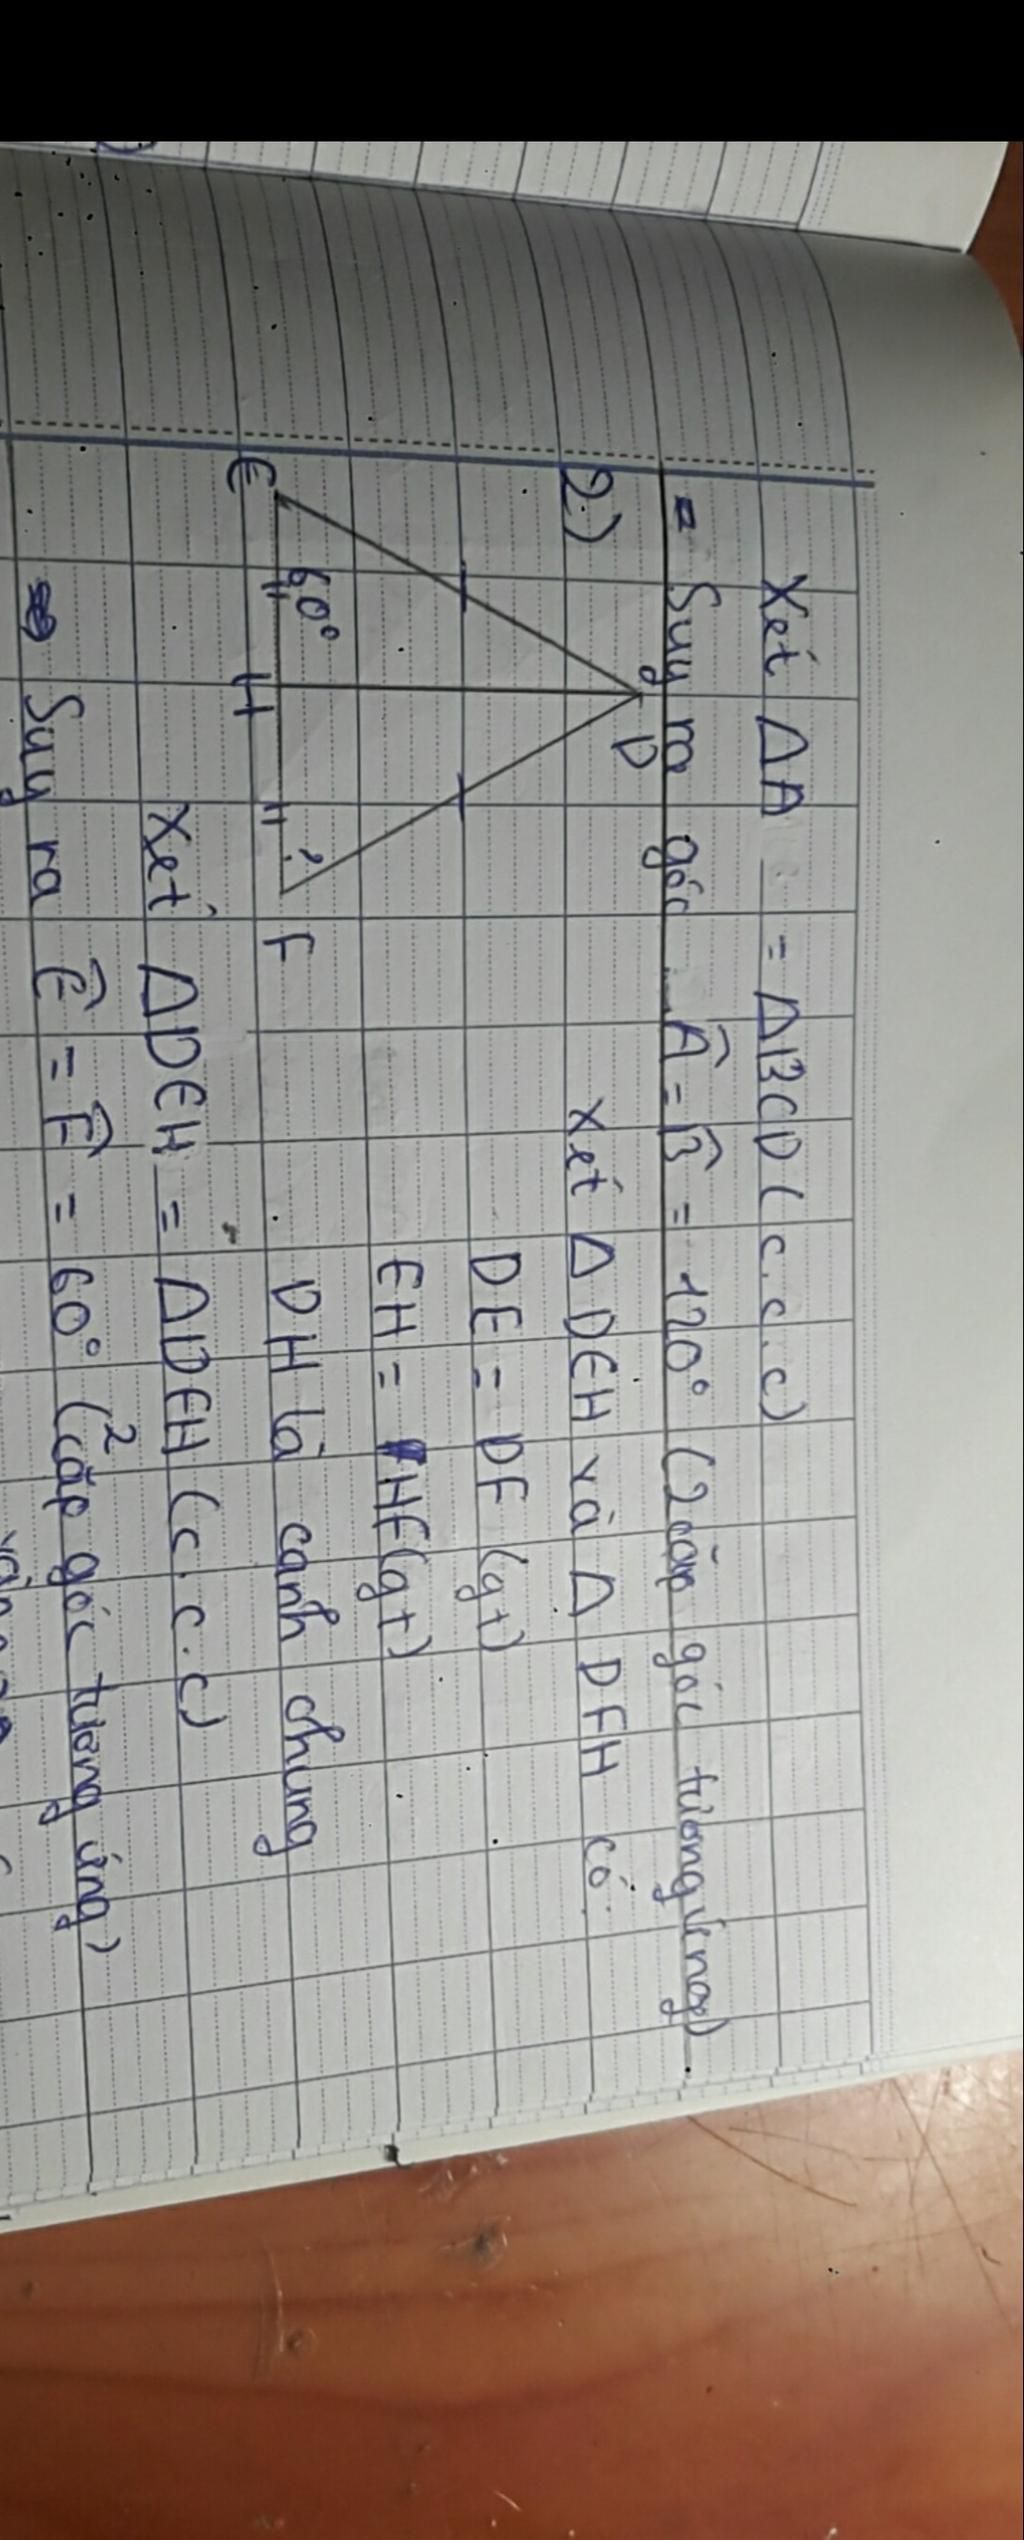 Xét ΔA = ΔBCD (c.c.c)
- Suy ra góc Â = B̂ = 120° (2 cặp góc tương ứng)
2)
D
60°
?
E H F
Xét Δ DEH và Δ DFH có:
DE = DF (gt)
EH = HF (gt)
DH là cạnh chung
Xét ΔDEH = ΔDEH (c.c.c)
Suy ra Ê = F̂ = 60° (2 cặp góc tương ứng)